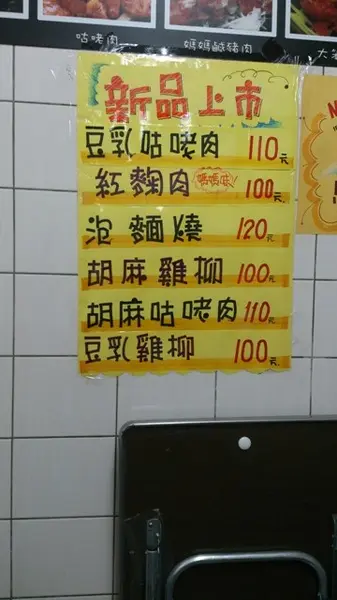 咕咾肉
媽媽鹹豬肉
新品上市
豆乳咕咾肉 110元
紅麴肉 媽媽味 100元
泡麵燒 120元
胡麻雞柳 100元
胡麻咕咾肉 110元
豆乳雞柳 100元